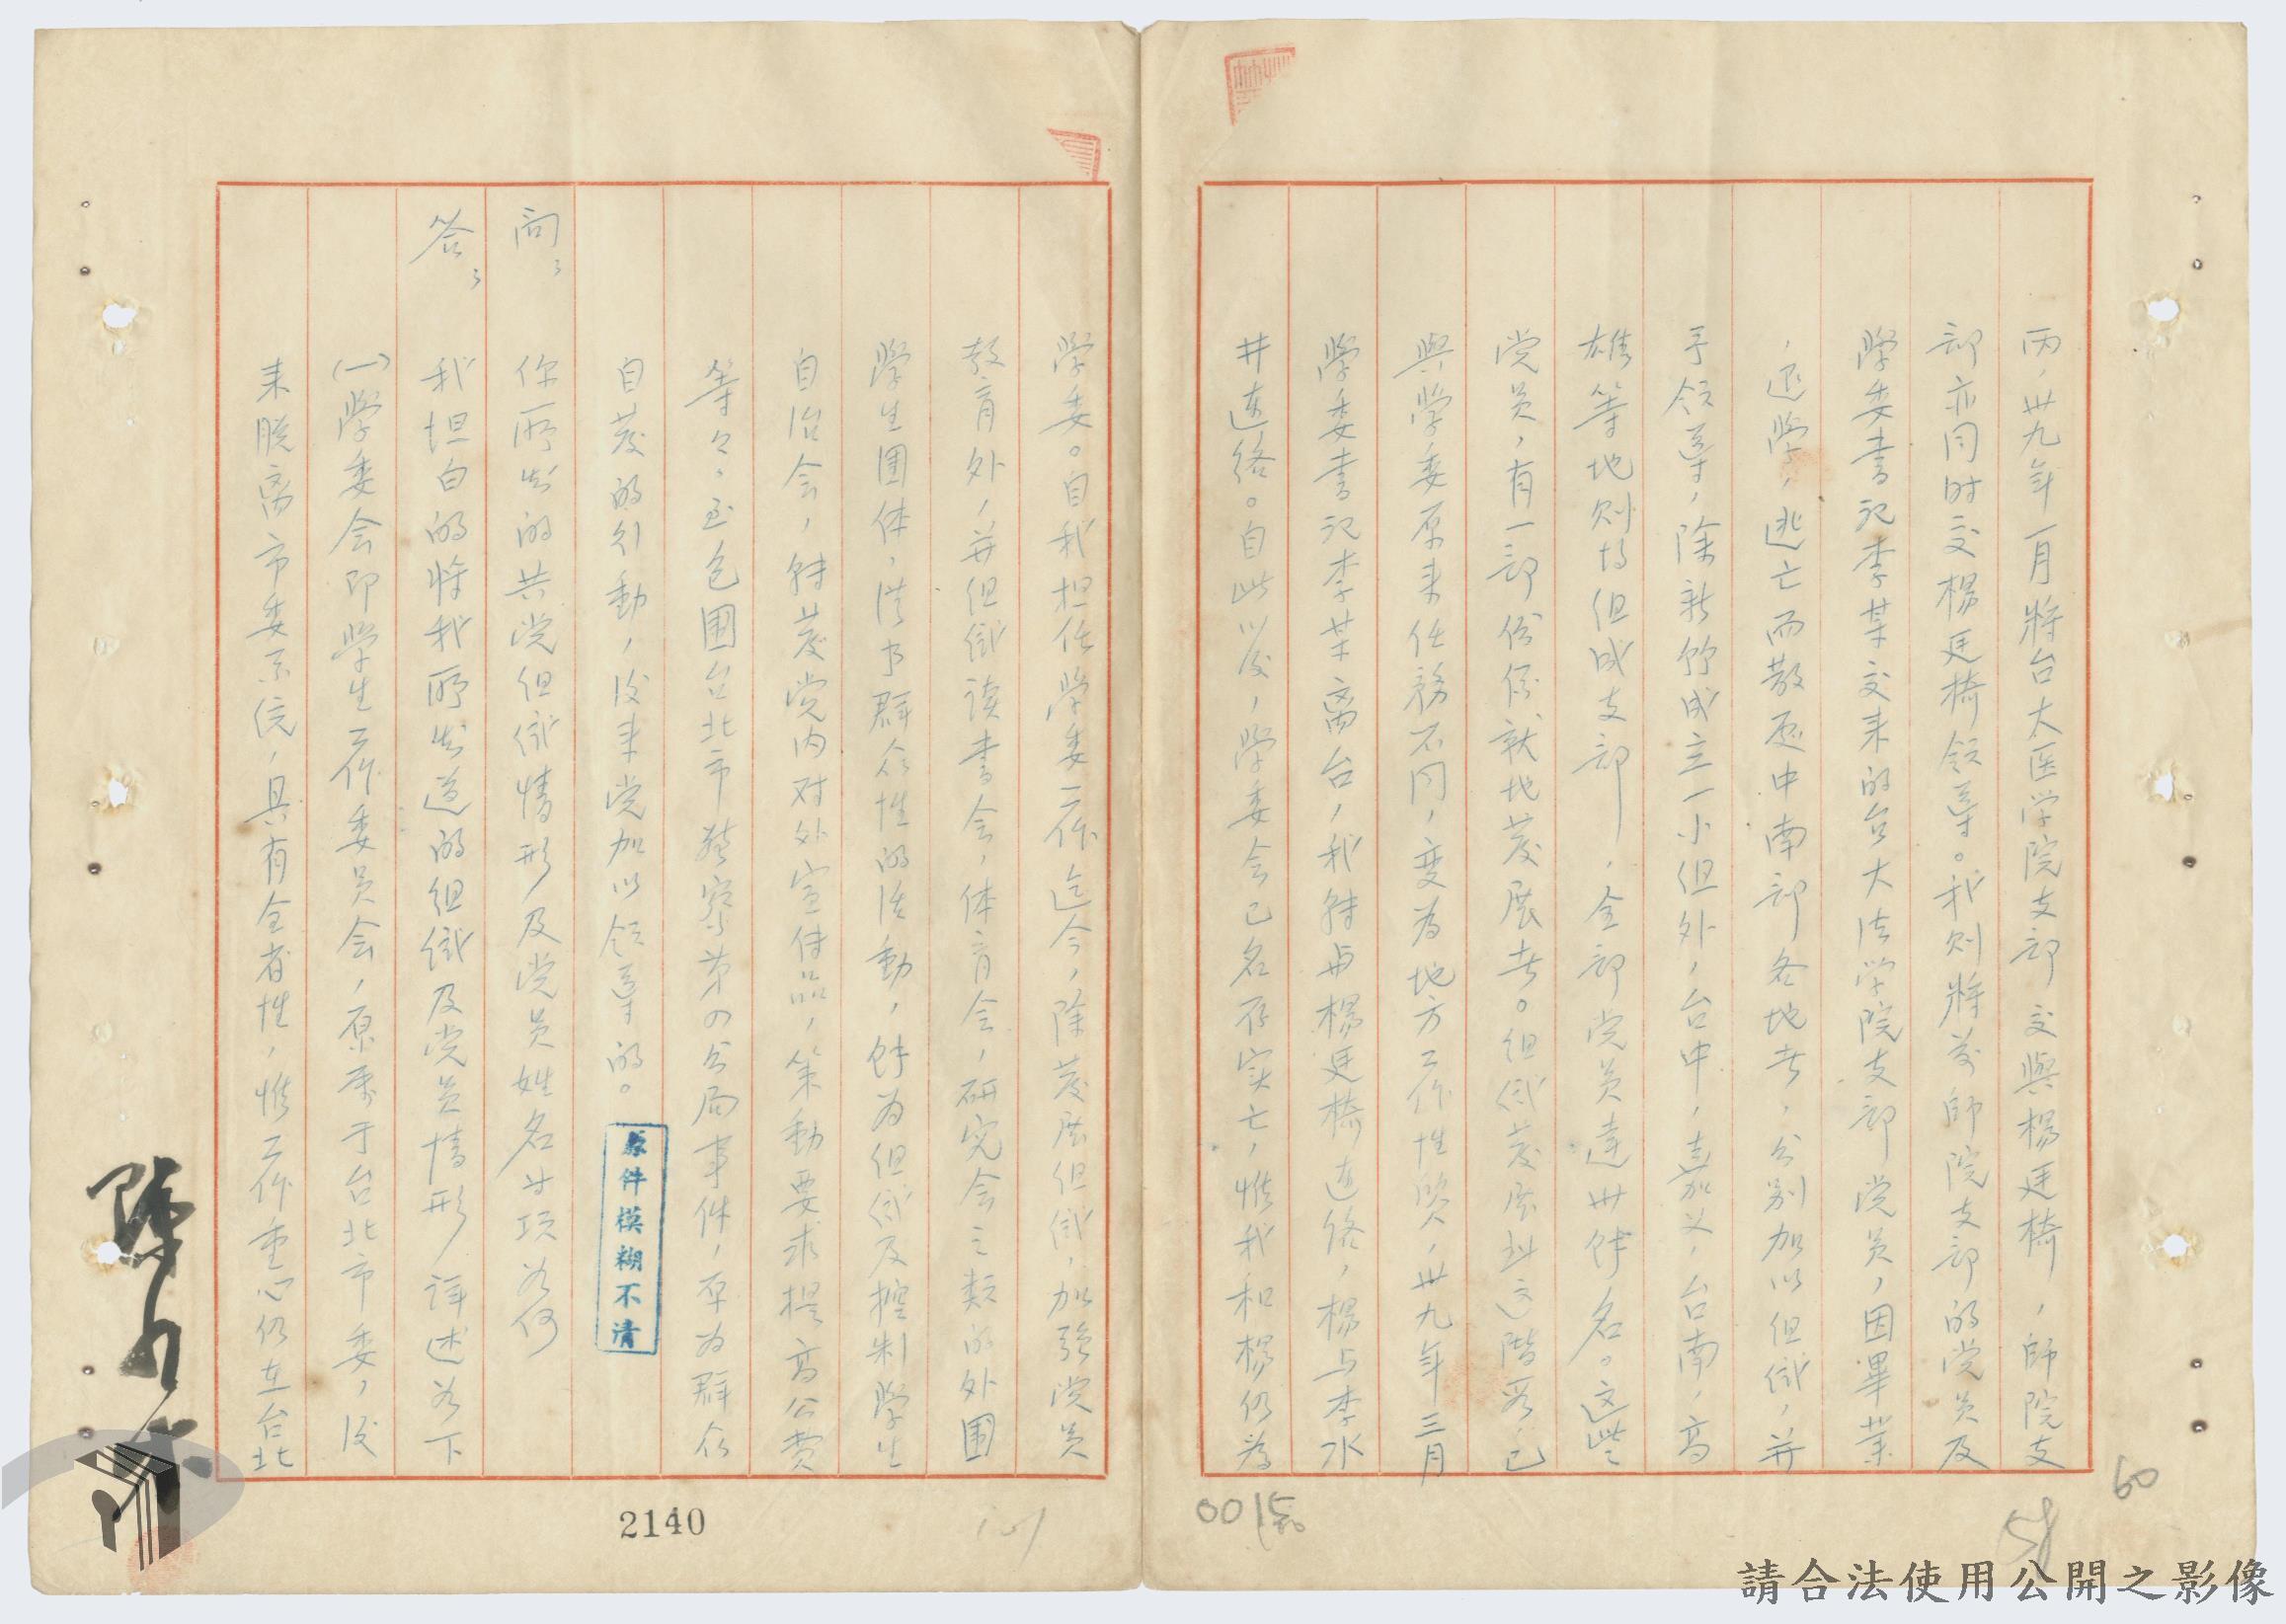 丙，卅九年一月將台大医学院支部交與楊廷椅，師院支
部亦同时交楊廷椅領導。我则將前師院支部的党员及
學委書记李某交来的台大法学院支部党员，因畢業
，退學，逃亡而散处中南部各地者，分别加以组織，并
予領導，除新竹成立一小组外，台中，嘉义，台南，高
雄等地则均组成支部，全部党员達卅餘名。这些
党员，有一部份係就地发展者。组織发展到这階段，已
與學委原来任務不同，变为地方工作性质，卅九年三月
學委書记李某离台，我转与楊廷椅連络，楊与李水
井連络。自此以後，學委会已名存实亡，惟我和楊仍为
學委。自我担任學委工作迄今，除发展组織，加強党员
教育外，并组織读書会，体育会，研究会之類的外围
學生團体，從事群众性的活動，转为组織及控制學生
自治会，转发党内对外宣传品，策動要求提高公费
等々，至包围台北市警察第四分局事件，原为群众
自发的行動，後来党加以領導的。
原件模糊不清
问：你所知的共党组織情形及党员姓名廿项为何
答：我坦白的将我所知道的组織及党员情形详述为下
(一)學委会即學生工作委员会，原属于台北市委，後
来脱离市委系统，具有全省性，惟工作重心仍在台北
2140
0015
60
請合法使用公開之影像